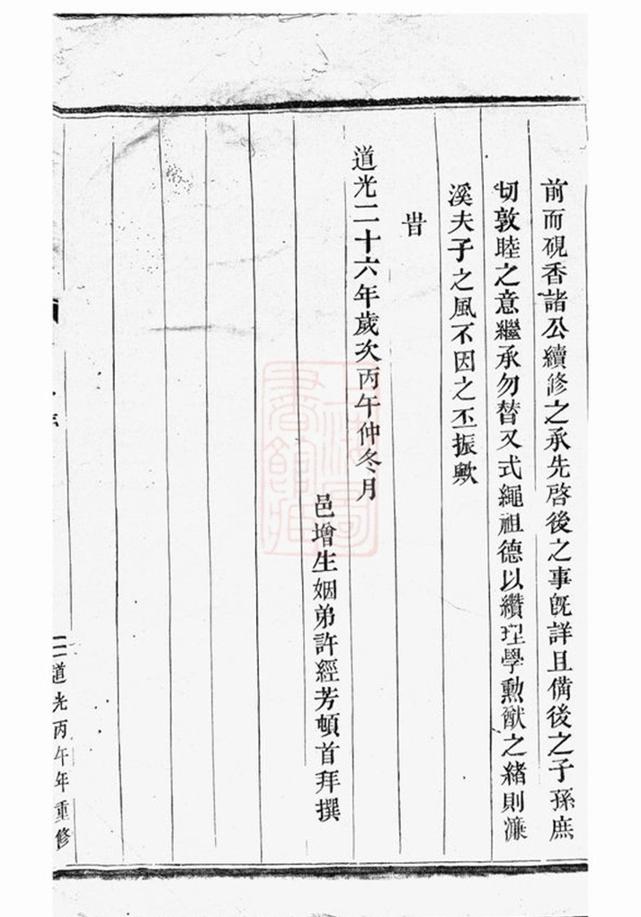 前而硯香諸公續修之承先啓後之事旣詳且備後之子孫庶
切敦睦之意繼承勿替又式繩祖德以纘理學勲猷之緒則濂
溪夫子之風不因之丕振歟
旹
道光二十六年歲次丙午仲冬月
邑增生姻弟許經芳頓首拜撰
二道光丙午年重修
上海圖書館藏